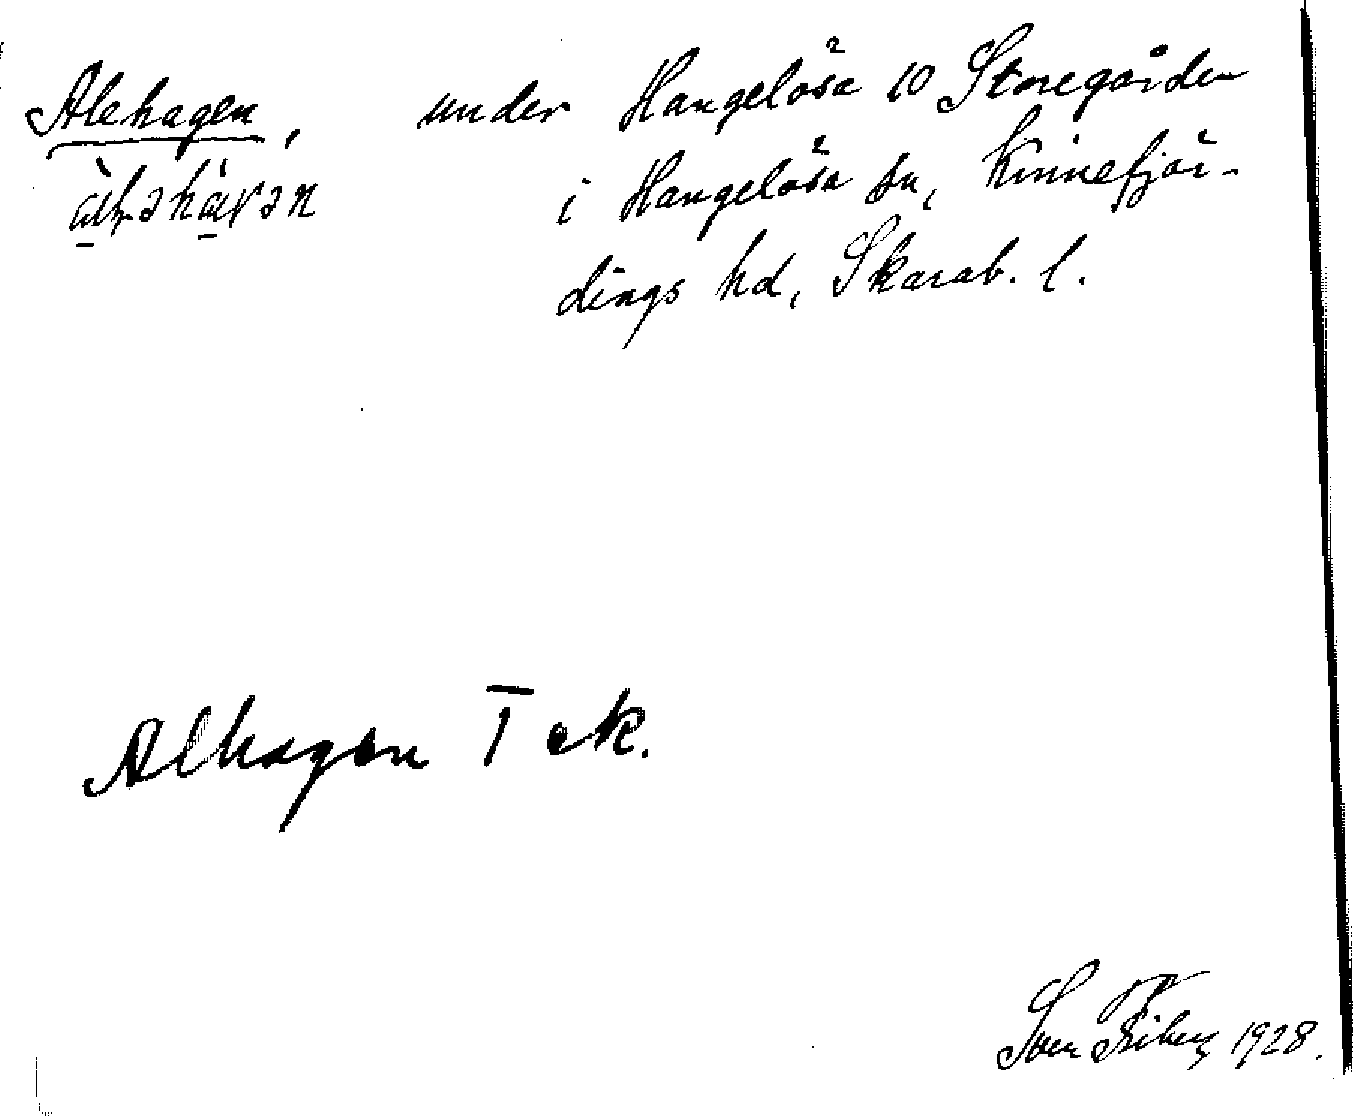 Alehagen, under Hangelösa 10 Storegården
i Hangelösa sn, Kinnefjär-
dings hd, Skarab. l.
Alhagen T ek.
Sven Friberg 1928.